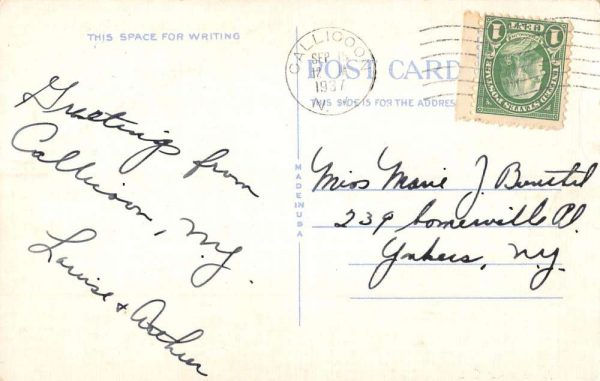 THIS SPACE FOR WRITING
Greeting from
Callicoon, N.Y.
Louise + Arthur
MADE IN USA
POST CARD
THIS SIDE IS FOR THE ADDRESS
CALLICOON
SEP
12
1937
N.Y.
1 CENT 1
UNITED STATES POSTAGE
Miss Marie J.
239 Somerville Pl.
Yonkers, N.Y.